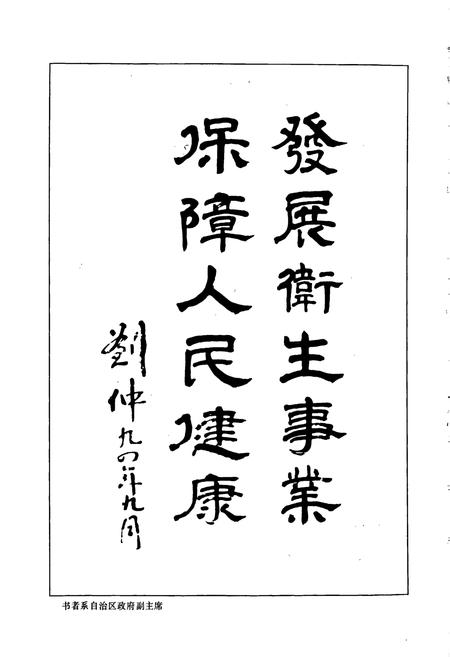 發展衛生事業
保障人民健康
劉仲九四年九月
书者系自治区政府副主席